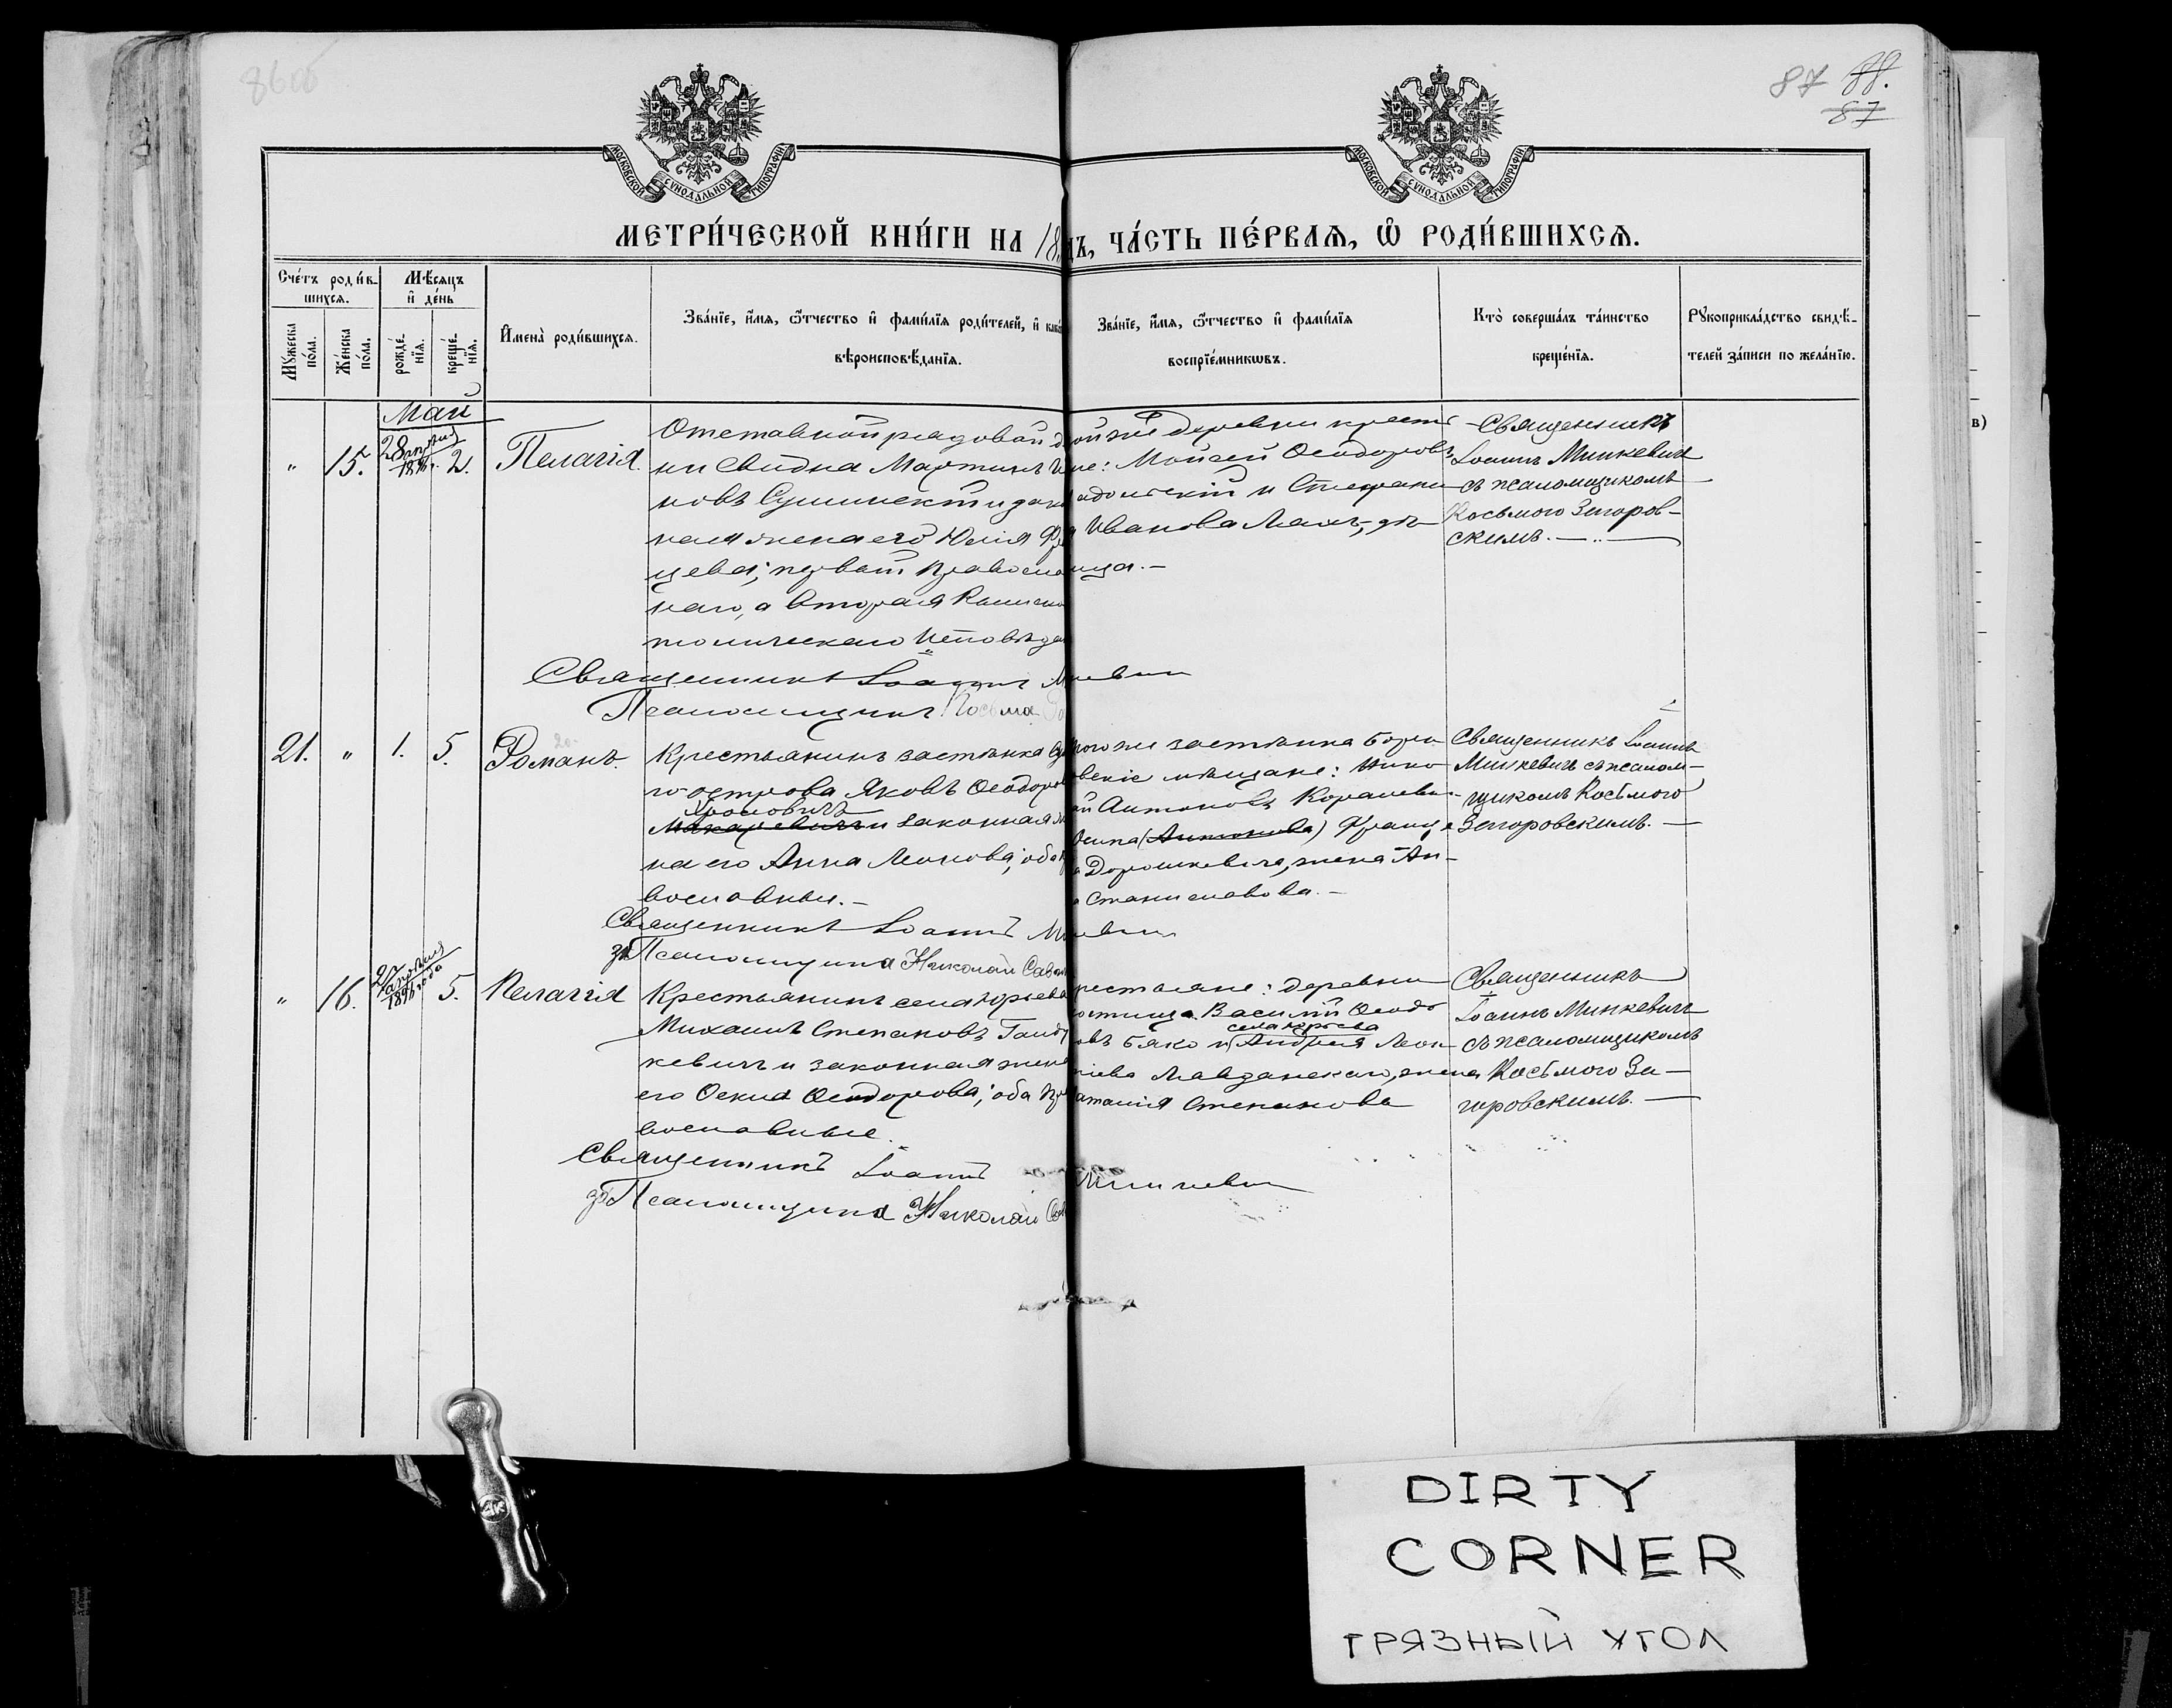 87 88.
87
МОСКОВСКОЙ СѴНОДАЛЬНОЙ ТИПОГРАФІИ
МОСКОВСКОЙ СѴНОДАЛЬНОЙ ТИПОГРАФІИ
МЕТРИ́ЧЕСКОЙ КНИ́ГИ НА 18 ДЪ, ЧА́СТЬ ПЕ́РВАѦ, Ѽ РОДИ́ВШИХСѦ.
Сче́тъ роди́в-
шихсѧ.
Мѣ́сѧцъ
и҆ де́нь
Мꙋ́жеска
по́ла.
Же́нска
по́ла.
рожде́-
нїѧ.
креще́-
нїѧ.
И҆мена̀ роди́вшихсѧ.
Зва́нїе, и҆́мѧ, ѻ҆́тчество и҆ фами́лїѧ роди́телей, и҆ како
вѣроисповѣ́данїѧ.
Зва́нїе, и҆́мѧ, ѻ҆́тчество и҆ фами́лїѧ
воспрїе́мникѡвъ.
Кто̀ соверша́лъ та́инство
креще́нїѧ.
Рꙋкоприкла́дство свидѣ́-
телей за́писи по жела́нїю.
Май
" 15. 28 апрѣля 1896 г. 2. Пелагія.
Отставной рядовой д
ни Свидна Мартинъ И
новъ Сушинскій и зако
ная жена его Юлія Фра
цева; первый православ
наго, а вторая Римско
толическаго исповѣда
ой же деревни крестья
не: Моисей Ѳеодоровъ
адомскій и Стефани
я Иванова Лахъ, дѣ
ица.
Священникъ
Іоаннъ Минкевичъ
съ псаломщикомъ
Косьмою Загоров-
скимъ.
Священникъ Іоаннъ М евичъ
Псаломщикъ Косьма За
21. " 1. 5. Романъ.
Крестьянинъ застѣнка
острова Яковъ Ѳеодоров
Хроловичъ
Макаревичъ и законная
на его Анна Леонова; оба
вославные.
того же застѣнка Бори
овскіе мѣщане: Нико
ай Антоновъ Королеви
Осипа (Антонова) Франц
Дорошкевича, жена Ан
Станиславова.
Священникъ Іоаннъ
Минкевичъ съ псалом-
щикомъ Косьмою
Загоровскимъ.
Священникъ Іоаннъ М евичъ
за Псаломщика Николай Сав
" 16. 27 апрѣля 1896 года 5. Пелагія
Крестьянинъ села Юрьева
Михаилъ Степановъ Гайду
кевичъ и законная жена
его Ѳекла Ѳеодорова; оба пра
вославные.
рестьяне: деревни
Василій Ѳеодо
села Юрьева
овъ Бяко и Андрея Леон
тіева Лавданскаго, жена
аталія Степанова
Священникъ
Іоаннъ Минкевичъ
съ псаломщикомъ
Косьмою За-
горовскимъ.
Священникъ Іоаннъ Минкевичъ
за Псаломщика Николай Са
DIRTY
CORNER
ГРЯЗНЫЙ УГОЛ